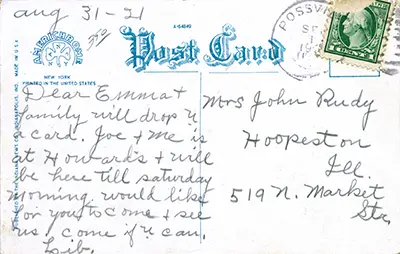 aug 31-21
350
A-64840
Post Card
MADE IN U.S.A.
NEW YORK
PRINTED IN THE UNITED STATES
POSSV
SE
1 CENT 1
Dear Emma +
family will drop u
a card. Joe + me is
at Howards + will
be here till saturday
morning. would like
for you to come + see
us. come if u can,
Lib.
Mrs John Rudy
Hoopeston
Ill.
519 N. Market
Sta.